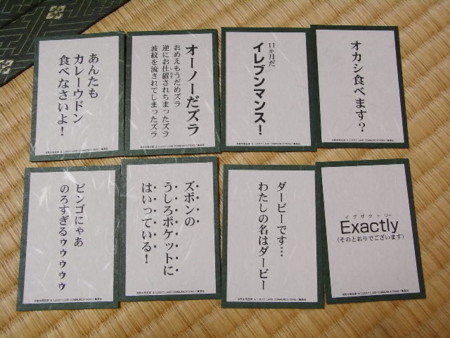 あんたも
カレーウドン
食べなさいよ！
オーノーだズラ
おめえもうだめズラ
逆にお仕置されちまったズラ
波紋を流されてしまったズラ
11ヶ月だ
イレブンマンス！
オカシ食べます？
ビンゴにゃあ
のろすぎるゥゥゥゥゥ
ズボンの
うしろポケットに
はいっている！
ダービーです…
わたしの名はダービー
イグザクトリー
Exactly
(そのとおりでございます)